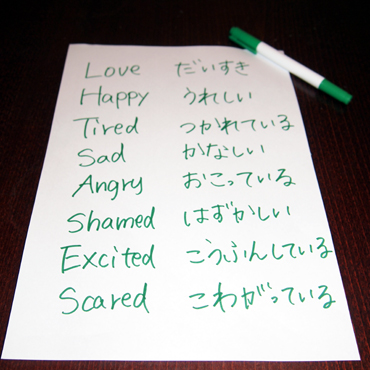 Love だいすき
Happy うれしい
Tired つかれている
Sad かなしい
Angry おこっている
Shamed はずかしい
Excited こうふんしている
Scared こわがっている